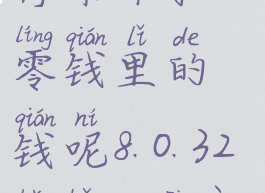 líng qián lǐ de
零钱里的
qián ní
钱呢8.0.32